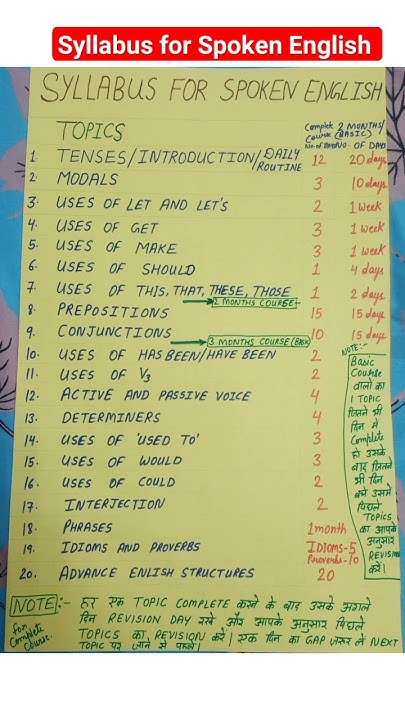 Syllabus for Spoken English
SYLLABUS FOR SPOKEN ENGLISH
TOPICS
Complete 2 MONTHS/
Course (BASIC)
No. of Days No. OF DAYS
1. TENSES/INTRODUCTION/DAILY ROUTINE 12 20 days
2. MODALS 3 10 days
3. USES OF LET AND LET'S 2 1 week
4. USES OF GET 3 1 week
5. USES OF MAKE 3 1 week
6. USES OF SHOULD 1 4 days
7. USES OF THIS, THAT, THESE, THOSE 1 2 days
2 MONTHS COURSE
8. PREPOSITIONS 15 15 days
9. CONJUNCTIONS 10 15 days
3 MONTHS COURSE (BASIC)
10. USES OF HAS BEEN/HAVE BEEN 2
11. USES OF V3 2
12. ACTIVE AND PASSIVE VOICE 4
13. DETERMINERS 4
14. USES OF 'USED TO' 3
15. USES OF WOULD 3
16. USES OF COULD 2
17. INTERJECTION 2
18. PHRASES 1 month
19. IDIOMS AND PROVERBS IDIOMS-5
Proverbs-10
20. ADVANCE ENLISH STRUCTURES 20
NOTE:-
Basic
Course
वालों का
1 TOPIC
जितने भी
दिन में
Complete
हो उसके
बाद जितने
भी दिन
बचे उसमें
पिछले
TOPICS
का आपके
अनुसार
REVISION
करें।
NOTE:- हर एक TOPIC COMPLETE करने के बाद उसके अगले
दिन REVISION DAY रखें और आपके अनुसार पिछले
TOPICS का REVISION करें। एक दिन का GAP जरूर लें NEXT
TOPIC पर जाने से पहले।
for
Complete
Course.